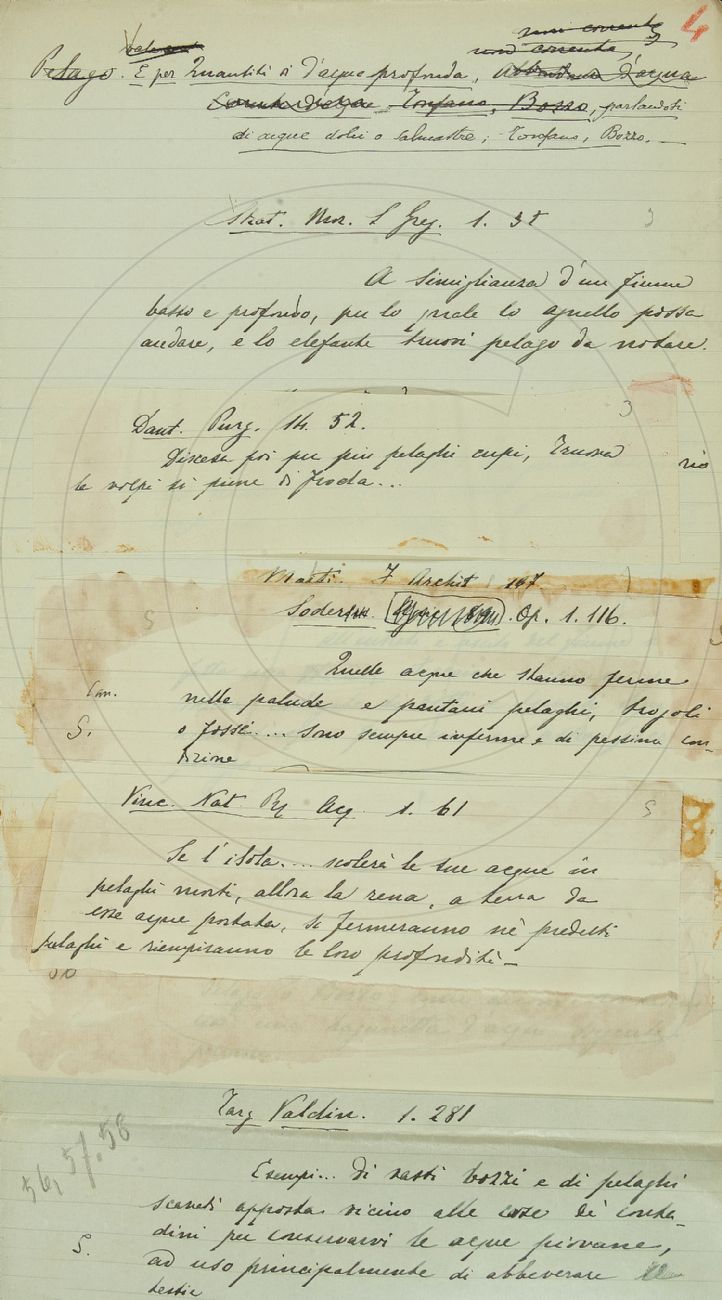 4
non corrente
non corrente,
Pelago. E per Quantità di d'acqua profonda, Abbondanza d'acqua
Tonfano, Bozzo, parlandosi
di acque dolci o salmastre; Tonfano, Bozzo. —
Strat. Mor. S Greg. 1. 3t
A simiglianza d'un fiume
basso e profondo, per lo quale lo agnello possa
andare, e lo elefante truovi pelago da notare.
Dant. Purg. 14. 52.
Discesa poi per più pelaghi cupi, Truova
le volpi sì piene di froda...
Marti. F Archit 167.
Soder. Op. 1. 116.
Quelle acque che stanno ferme
nelle palude e pantani pelaghi, trogoli
o fossi.... sono sempre inferme e di pessima con-
dizione
S.
Vinc. Nat Reg Acq. 1. 61
Se l'isola.... scolerà le sue acque in
pelaghi morti, allora la rena, o terra da
esse acque portata, si fermeranno nè predetti
pelaghi e riempiranno le loro profondità —
Targ Valdin. 1. 281
56, 57. 58
Esempi... di vasti bozzi e di pelaghi
scavati apposta vicino alle case de' conta-
dini per conservarvi le acque piovane,
S.
ad uso principalmente di abbeverare le
bestie